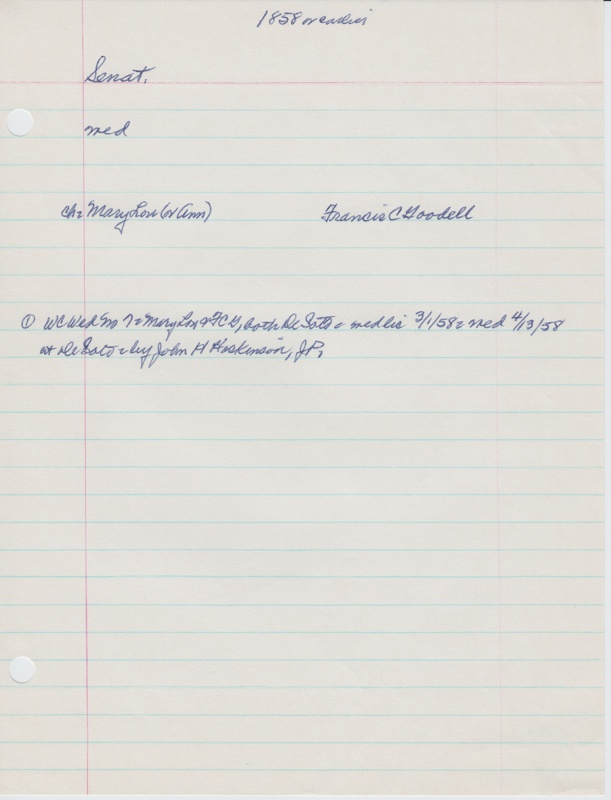 1858 or earlier
Senat.
med
ch= Mary Lou (or Ann) Francis C Goodell
① WC Wed No 7= Mary Lou & FCG, both De Soto = med lic 3/1/58= med 4/13/58
at De Soto = by John H Hoskinson, JP,